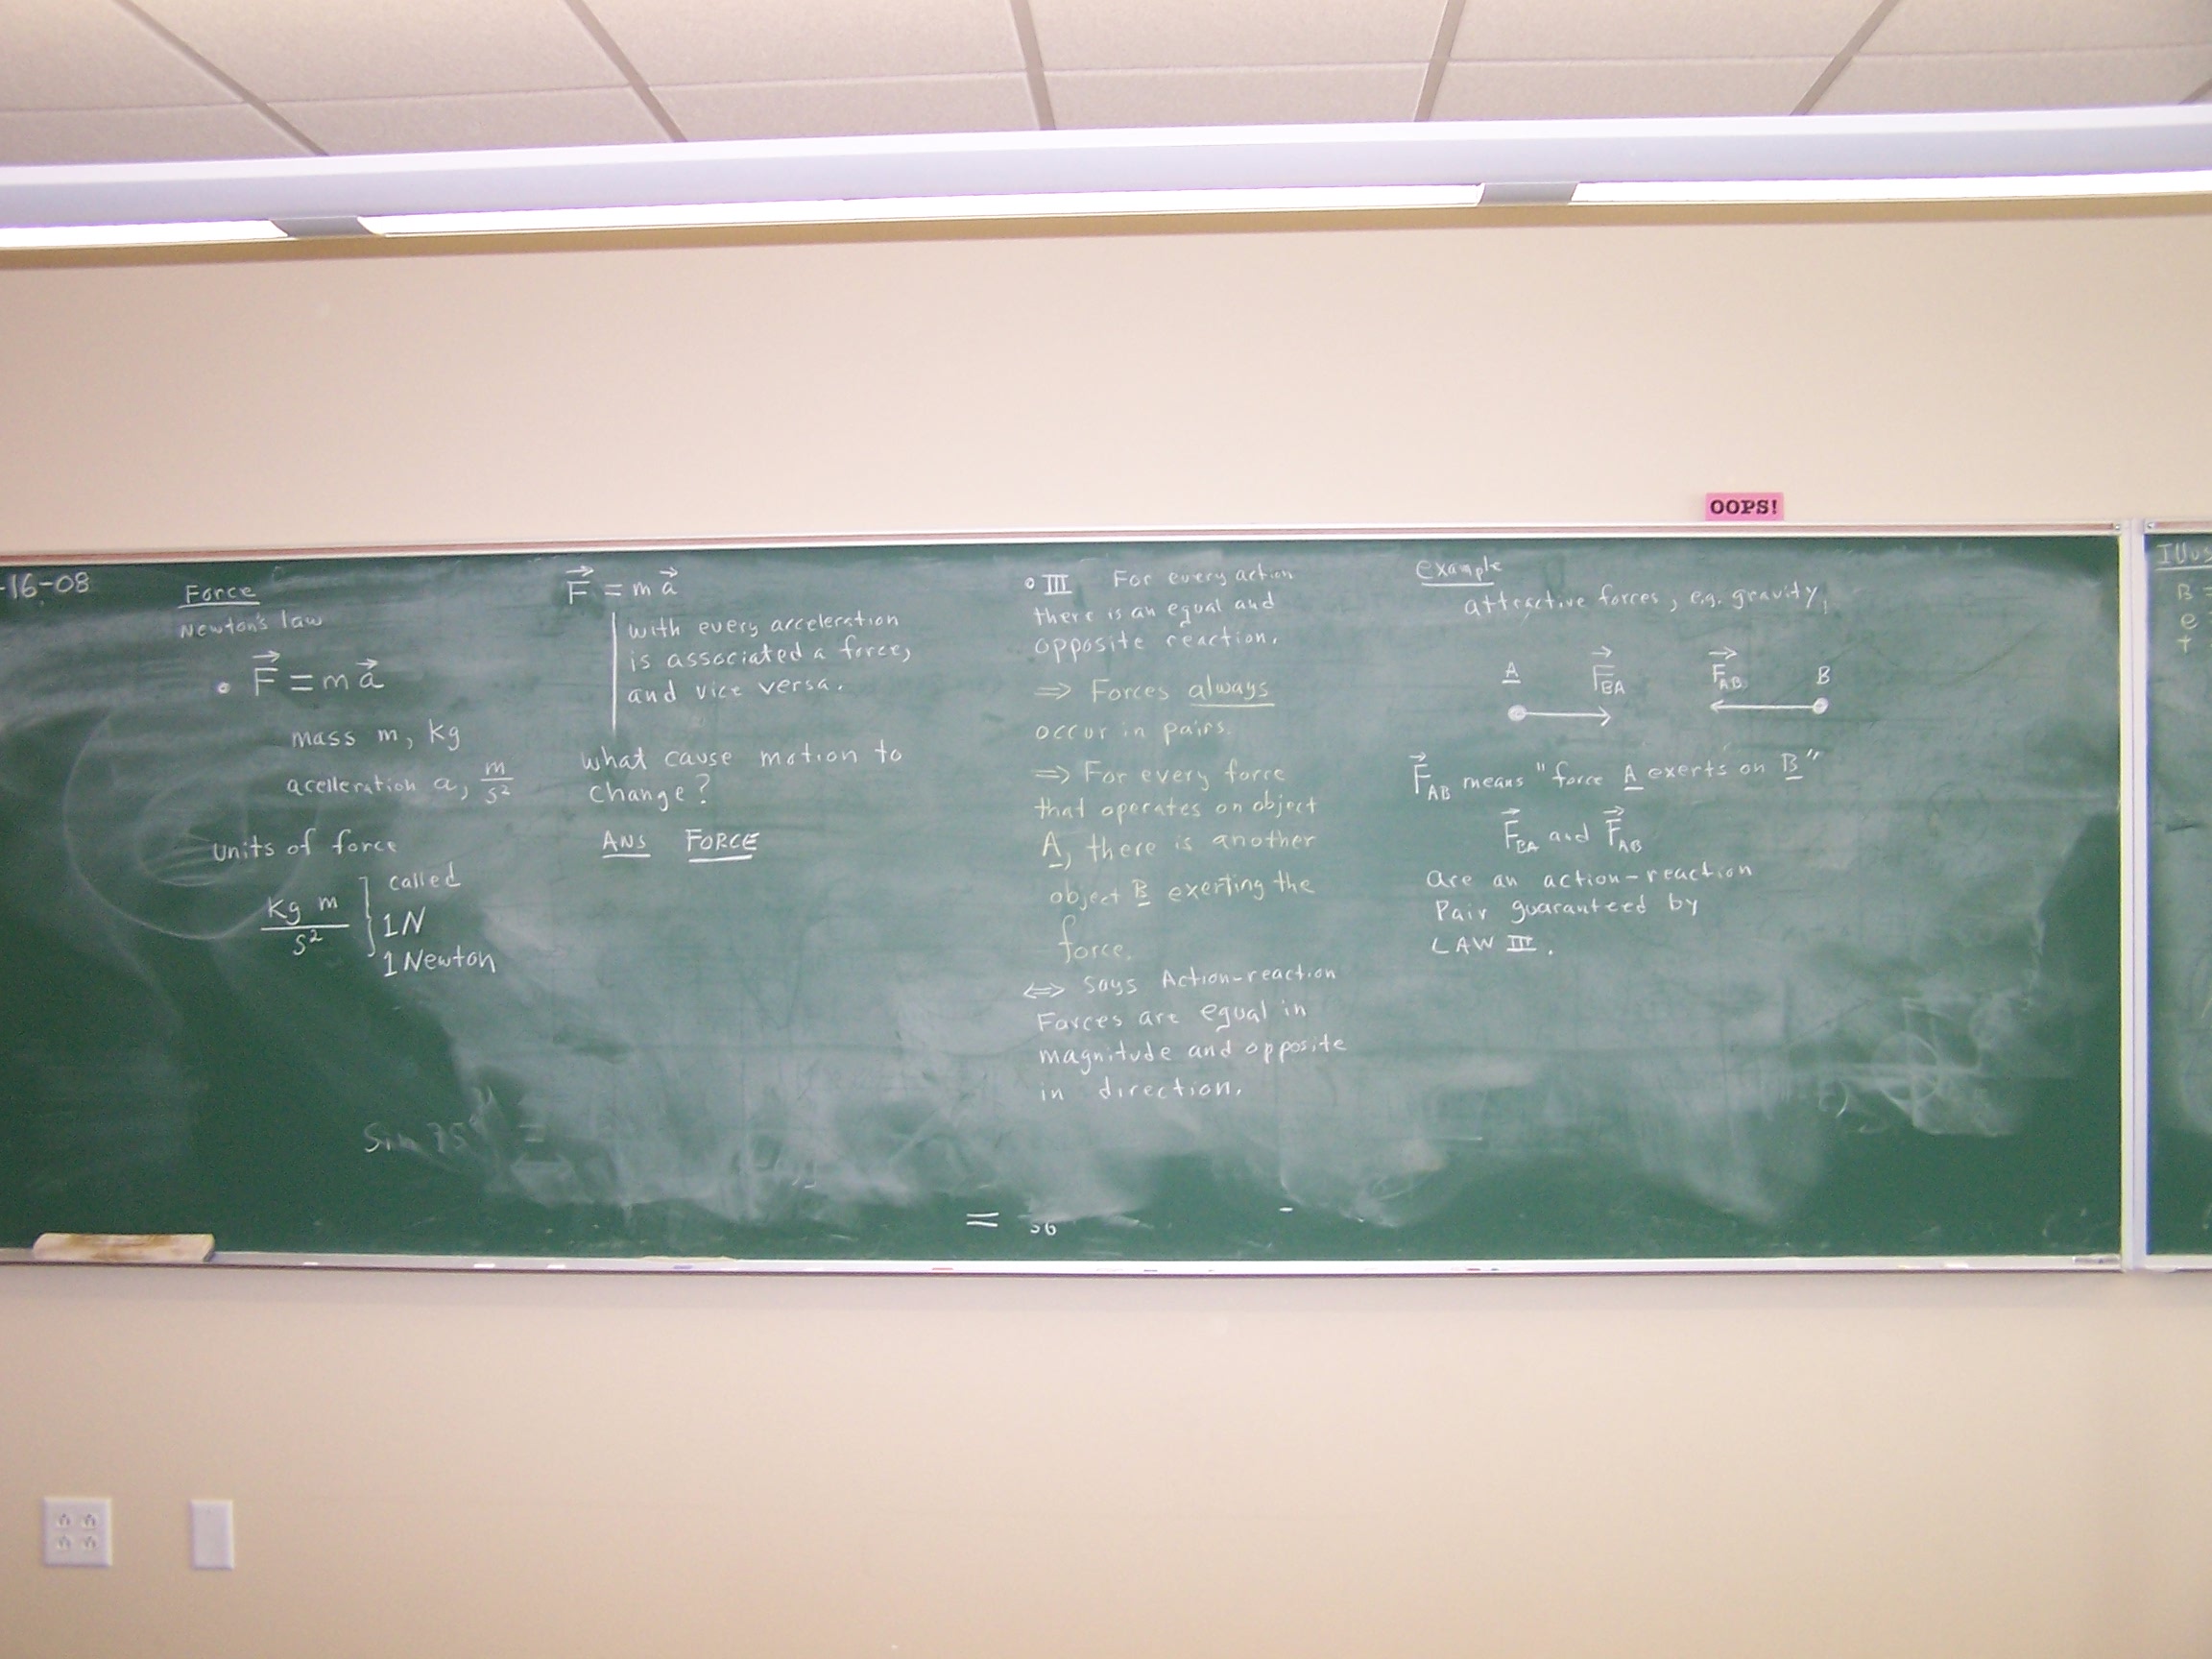 OOPS!
-16-08
Force
Newton's law
• F⃗ = m a⃗
mass m, kg
acelleration a, m/s²
units of force
Kg m / s² } called
1N
1 Newton
Sin 75° =
F⃗ = m a⃗
with every acceleration
is associated a force,
and vice versa.
what cause motion to
change?
ANS FORCE
• III For every action
there is an equal and
opposite reaction.
⇒ Forces always
occur in pairs.
⇒ For every force
that operates on object
A, there is another
object B exerting the
force.
⇔ says Action-reaction
Forces are equal in
magnitude and opposite
in direction.
=
example
attractive forces, e.g. gravity,
A F⃗BA F⃗AB B
F⃗AB means "force A exerts on B"
F⃗BA and F⃗AB
are an action-reaction
Pair guaranteed by
LAW III.